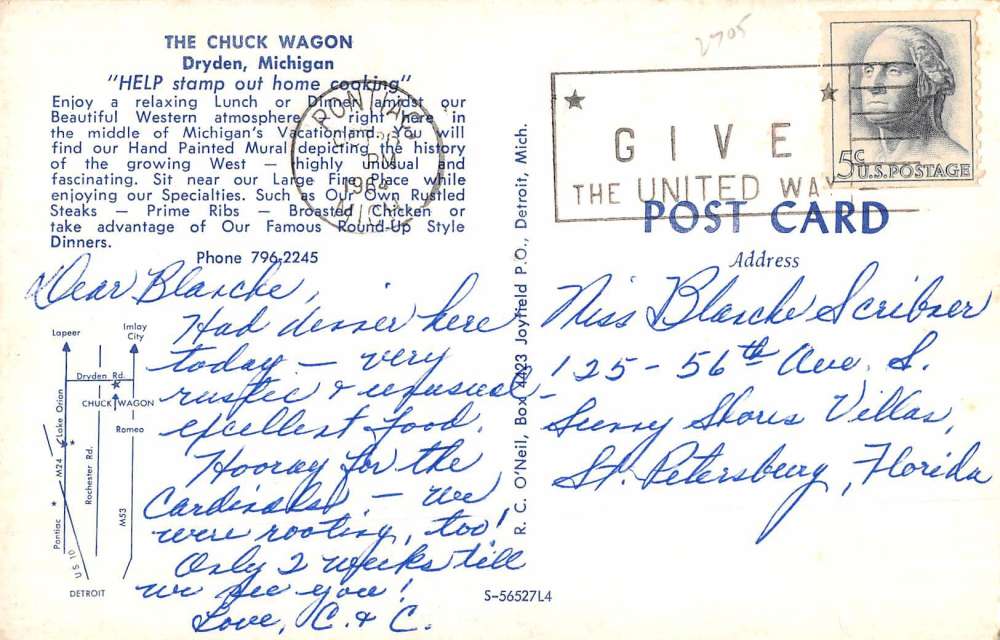 2705
THE CHUCK WAGON
Dryden, Michigan
"HELP stamp out home cooking"
Enjoy a relaxing Lunch or Dinner amidst our
Beautiful Western atmosphere — right here in
the middle of Michigan's Vacationland. You will
find our Hand Painted Mural depicting the history
of the growing West — highly unusual and
fascinating. Sit near our Large Fire Place while
enjoying our Specialties. Such as Our Own Rustled
Steaks — Prime Ribs — Broasted Chicken or
take advantage of Our Famous Round-Up Style
Dinners.
Phone 796-2245
PONTIAC
PM
1964
MICH
GIVE
THE UNITED WAY
5c
U.S. POSTAGE
POST CARD
Address
Dear Blanche,
Had dinner here
today — very
rustic & unusual -
excellent food.
Hooray for the
Cardinals — we
were rooting, too!
Only 2 weeks till
we see you!
Love, C. & C.
Miss Blanche Scribner
125 - 56th Ave. S.
Sunny Shores Villas,
St. Petersburg, Florida
Lapeer
Imlay
City
Dryden Rd.
CHUCK WAGON
Lake Orion
Romeo
M24
Rochester Rd.
M53
Pontiac
US 10
DETROIT
R. C. O'Neil, Box 4423 Joyfield P.O., Detroit, Mich.
S-56527L4